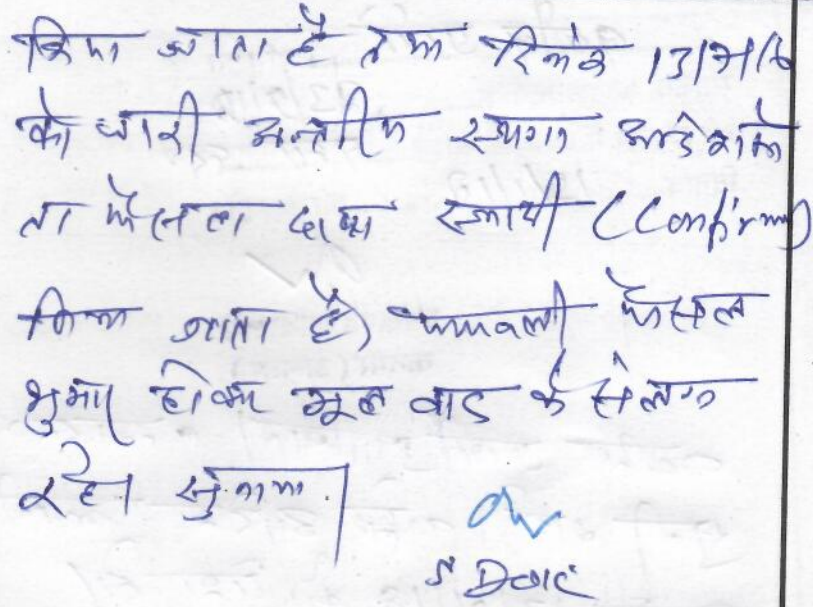 किया जाता है तथा दिनांक 13/7/16
को जारी अन्तरिम स्थगन आदेश को
ता फैसला दावा स्थायी (Confirm)
किया जाता है। पत्रावली फैसल
शुमार होकर मूल वाद के संलग्न
रहे। सुनाया।